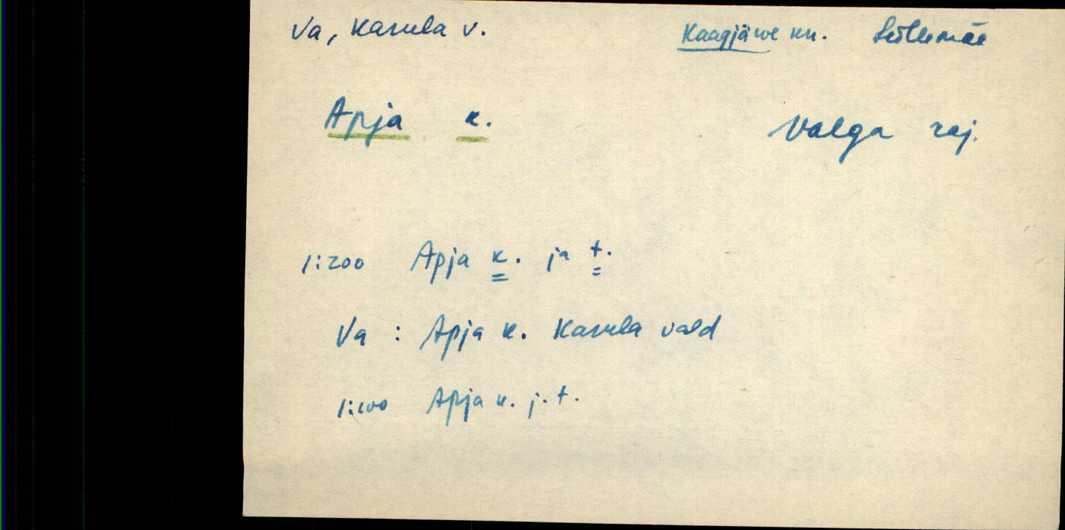 Va, Karula v. Kaagjärve kn. Sõllemäe
Apja k. Valga raj.
1:200 Apja k. ja t.
Va : Apja k. Karula vald
1:100 Apja k. j. t.